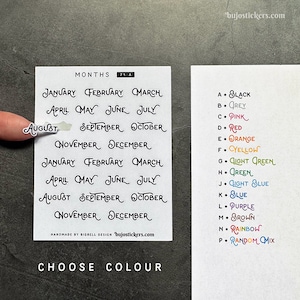 ©bujostickers.com
MONTHS 71-A
January February March
April May June July
August September October
November December
January February March
April May June July
August September October
November December
HANDMADE BY BIGBELL DESIGN bujostickers.com
CHOOSE COLOUR
A • Black
B • Grey
C • Pink
D • Red
E • Orange
F • Yellow
G • Light Green
H • Green
J • Light Blue
K • Blue
L • Purple
M • Brown
N • Rainbow
P • Random Mix